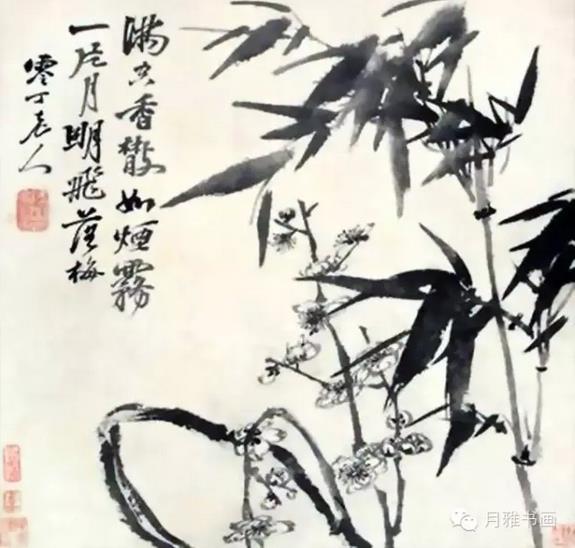 满空香散如烟雾
一片月明飛落梅
零丁老人
月雅书画